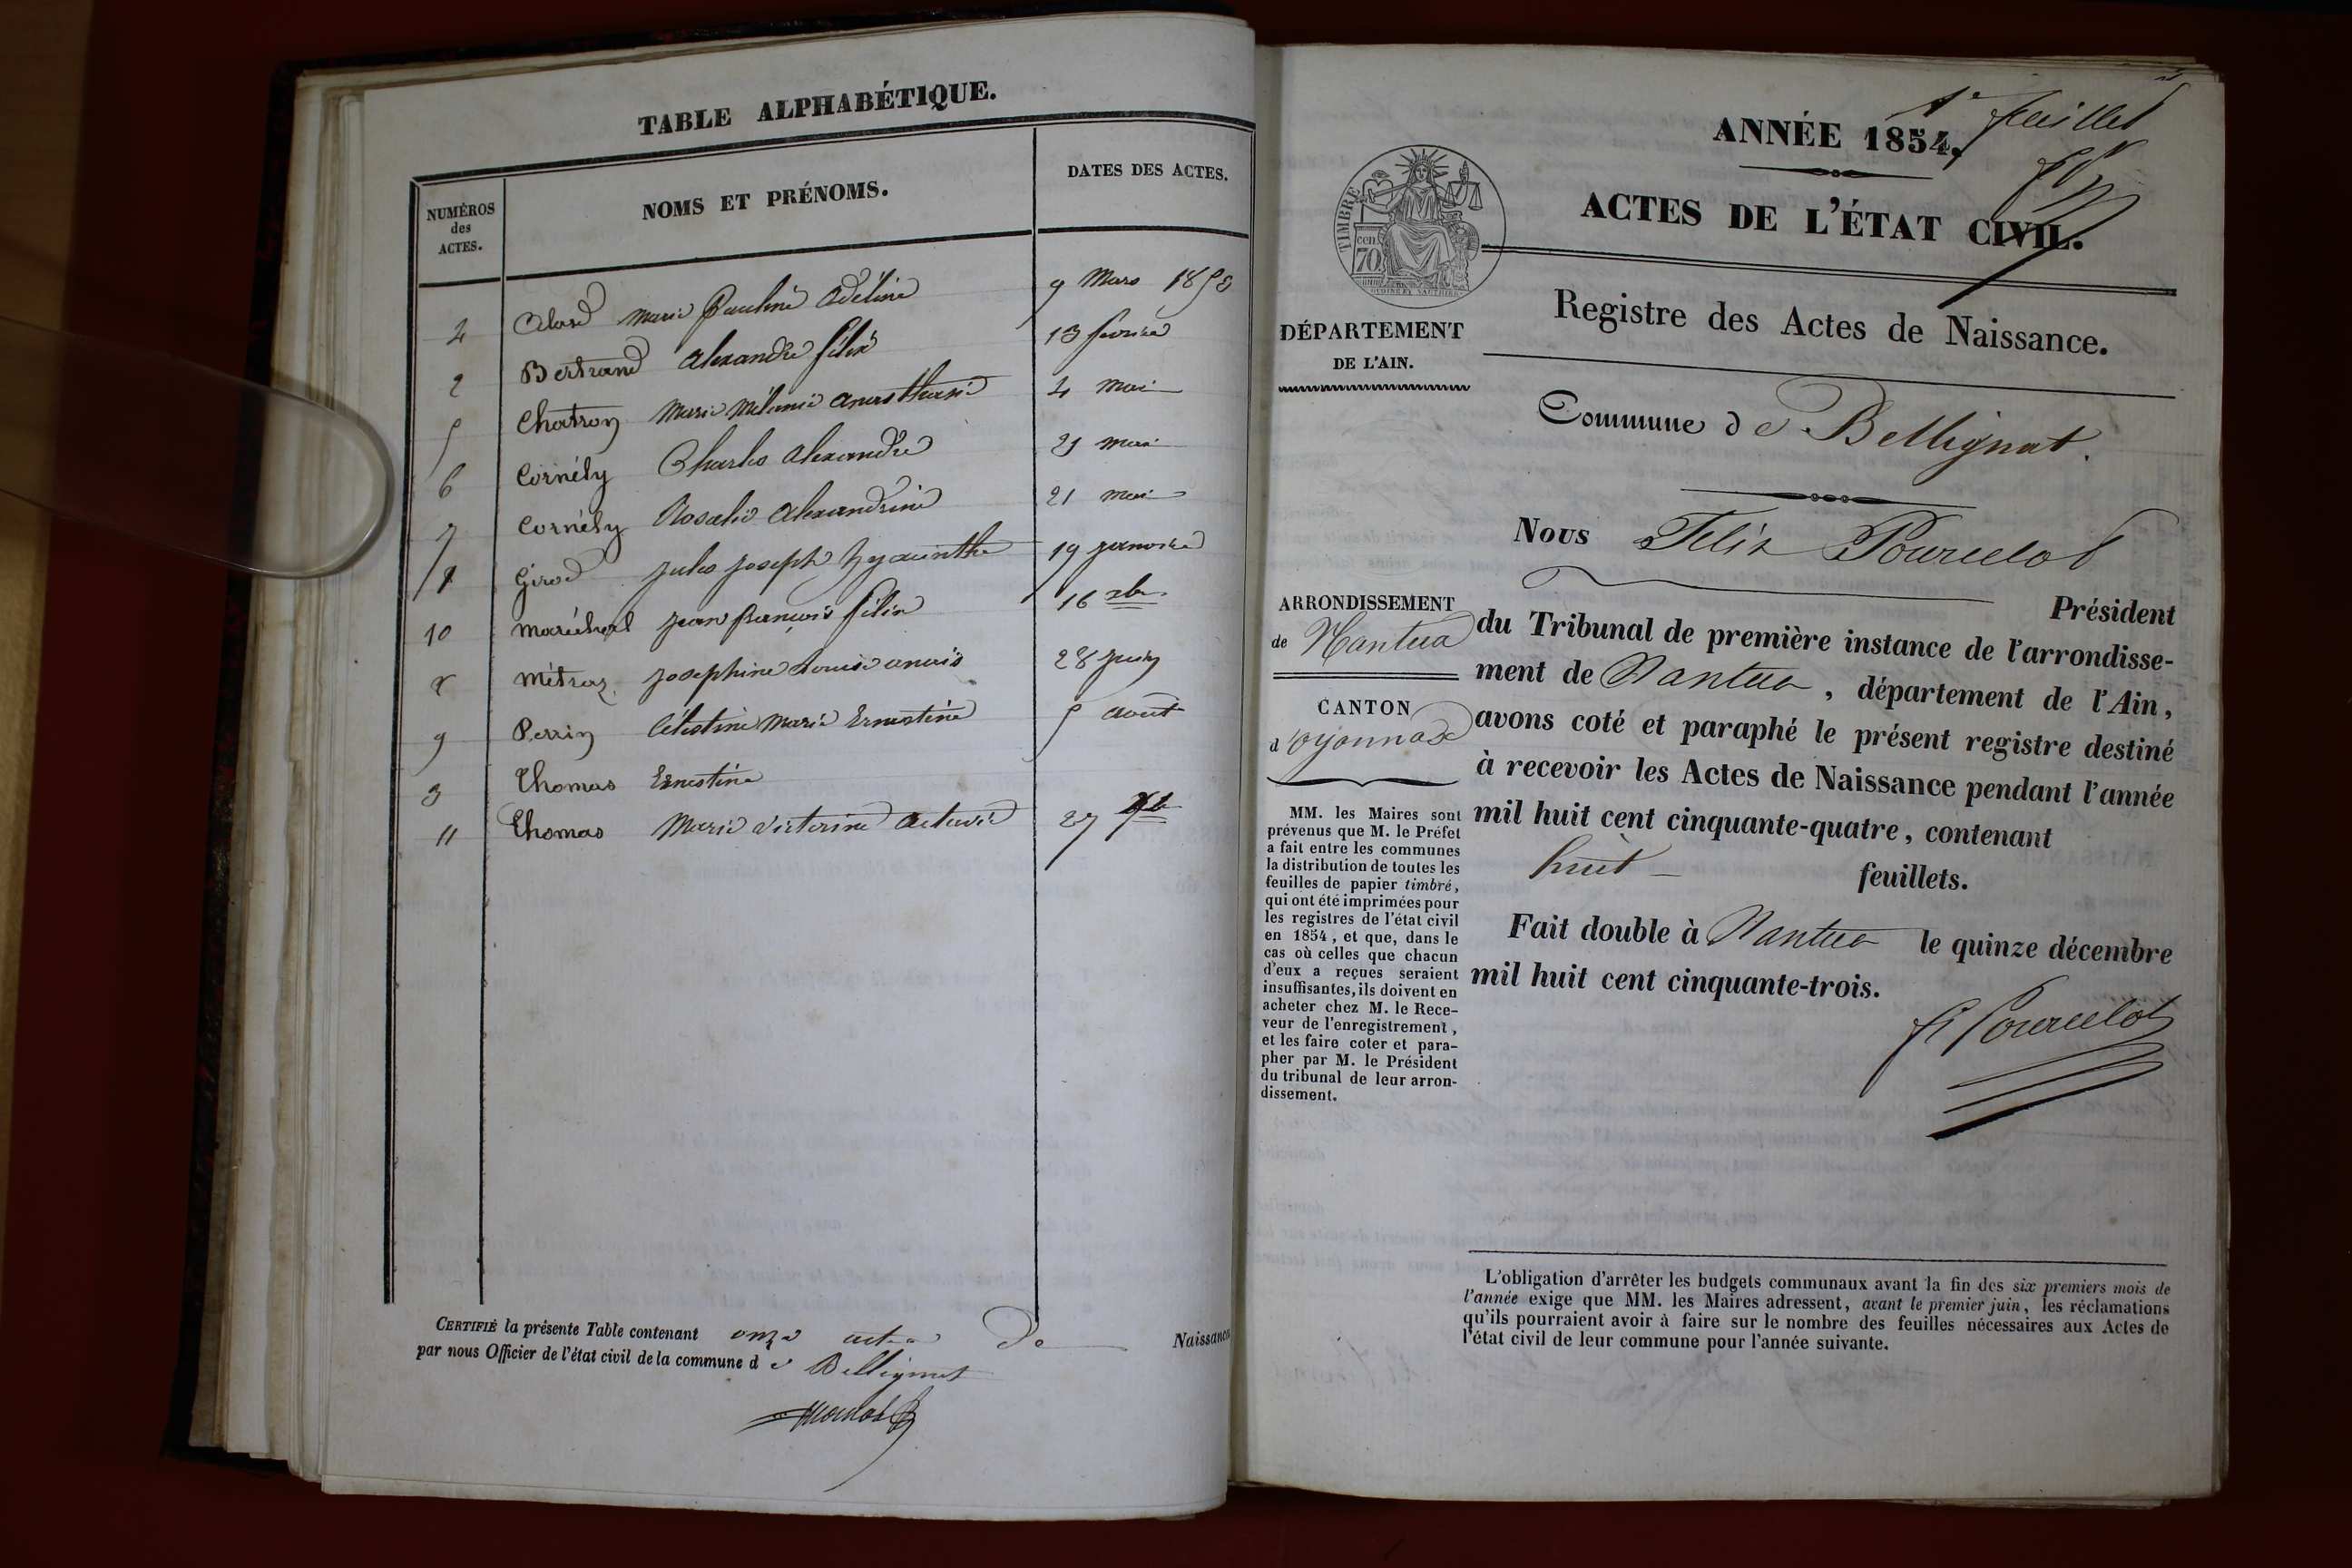 TABLE ALPHABÉTIQUE.
NUMÉROS des ACTES. NOMS ET PRÉNOMS. DATES DES ACTES.
4 Marie Pauline Adéline 9 Mars 1853
2 Bertrand Alexandre félix 13 fevrier
5 Chatron Marie Mélanie Anasthasie 4 mai
6 Cornély Charles Alexandre 21 mai
7 Cornély Rosalie Alexandrine 21 mai
1 Girod Jules Joseph hyacinthe 19 janvier
10 Maréchal Jean françois félix 16
8 Métraz Josephine Louise anaïs 28 juin
9 Perrin Célestine Marie Ernestine 5 aout
3 Thomas Ernestine
11 Thomas Marie Victorine 27
CERTIFIÉ la présente Table contenant onze actes de Naissance
par nous Officier de l'état civil de la commune d e Bellignat
1er feuillet
ANNÉE 1854.
ACTES DE L'ÉTAT CIVIL.
TIMBRE
cen.
70
Registre des Actes de Naissance.
DÉPARTEMENT
DE L'AIN.
Commune d e Bellignat.
Nous Félix Pourcelot
Président
ARRONDISSEMENT
de Nantua
CANTON
d'oyonnax
du Tribunal de première instance de l'arrondisse-
ment de Nantua, département de l'Ain,
avons coté et paraphé le présent registre destiné
à recevoir les Actes de Naissance pendant l'année
mil huit cent cinquante-quatre, contenant
huit feuillets.
Fait double à Nantua le quinze décembre
mil huit cent cinquante-trois.
f Pourcelot
MM. les Maires sont
prévenus que M. le Préfet
a fait entre les communes
la distribution de toutes les
feuilles de papier timbré,
qui ont été imprimées pour
les registres de l'état civil
en 1854, et que, dans le
cas où celles que chacun
d'eux a reçues seraient
insuffisantes, ils doivent en
acheter chez M. le Rece-
veur de l'enregistrement,
et les faire coter et para-
pher par M. le Président
du tribunal de leur arron-
dissement.
L'obligation d'arrêter les budgets communaux avant la fin des six premiers mois de
l'année exige que MM. les Maires adressent, avant le premier juin, les réclamations
qu'ils pourraient avoir à faire sur le nombre des feuilles nécessaires aux Actes de
l'état civil de leur commune pour l'année suivante.